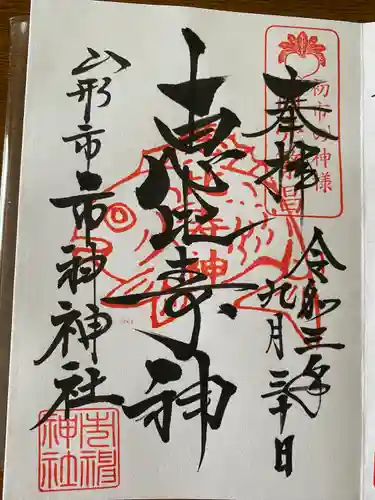 奉拝
初市の神様
令和三年
九月三十日
恵比寿神
山形市市神神社
市神
神社